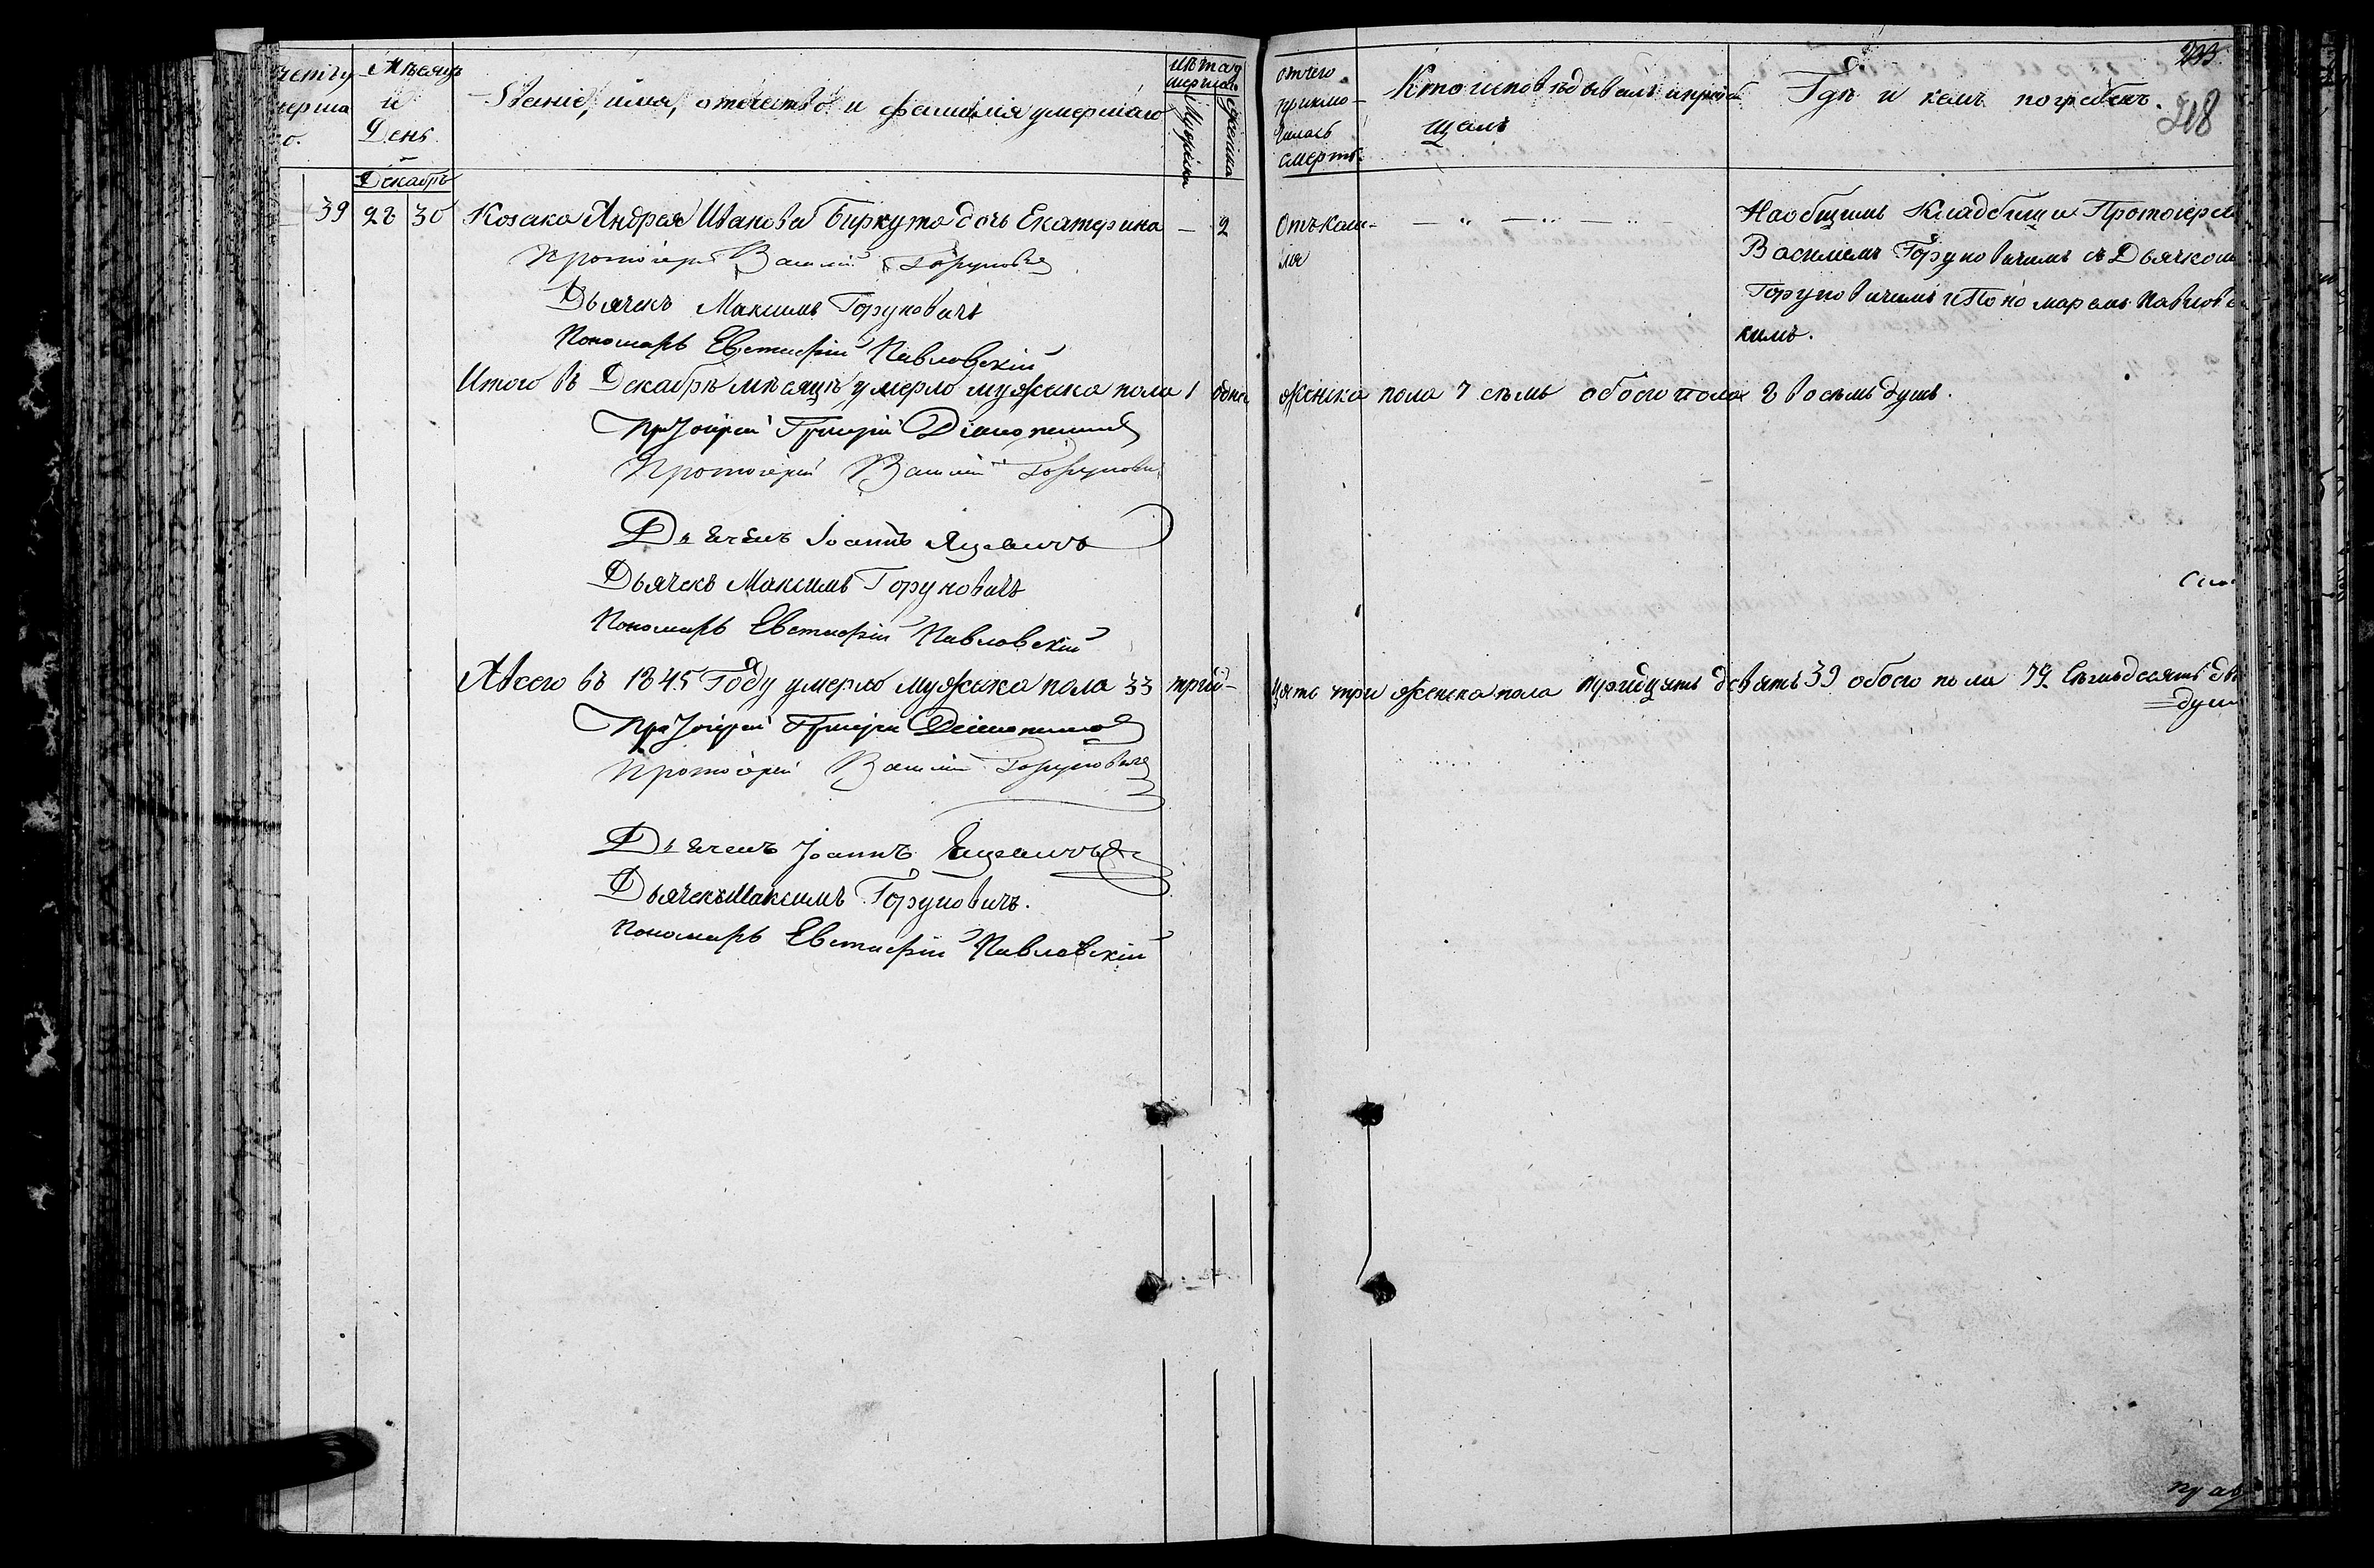 Мѣсяцъ
и
День
Званіе, имя, отечество и фамилія умершаго
Лѣта у
мершаго
Мужеска
Женска
отчего
приклю-
чилась
смерть.
Кто исповѣдывалъ и пріоб
щалъ
Гдѣ и кемъ погребенъ.
218
Декабрь
39 28 30 Козака Андрея Иванова Биркута дочь Екатерина — 2 Отъ каш-
ля
На общемъ Кладбищи Протоіерее
Василіемъ Горуновичимъ съ Дьячкомъ
Горуновичимъ и Пономаремъ Павловс
кимъ.
Протоіерей Василій Горуновичъ
Дьячекъ Максимъ Горуновичъ
Пономарь Евстафій Павловскій
Итого въ Декабрѣ мѣсяцѣ умерло мужеска пола 1 одна женска пола 7 семь обоего пола 8 восемь душъ.
Протоіерей Григорій
Протоіерей Василій Горуновичъ
Дьячекъ Іоаннъ Яцевичъ
Дьячекъ Максимъ Горуновичъ
Пономарь Евстафій Павловскій
Всего въ 1845 Году умерло мужска пола 33 трид-
цять три женска пола тридцять девять 39 обоего пола 72 Семьдесятъ две
душ
Протоіерей Григорій
Протоіерей Василій Горуновичъ
Дьячекъ Іоаннъ Яцевичъ
Дьячекъ Максимъ Горуновичъ.
Пономарь Евстафій Павловскій